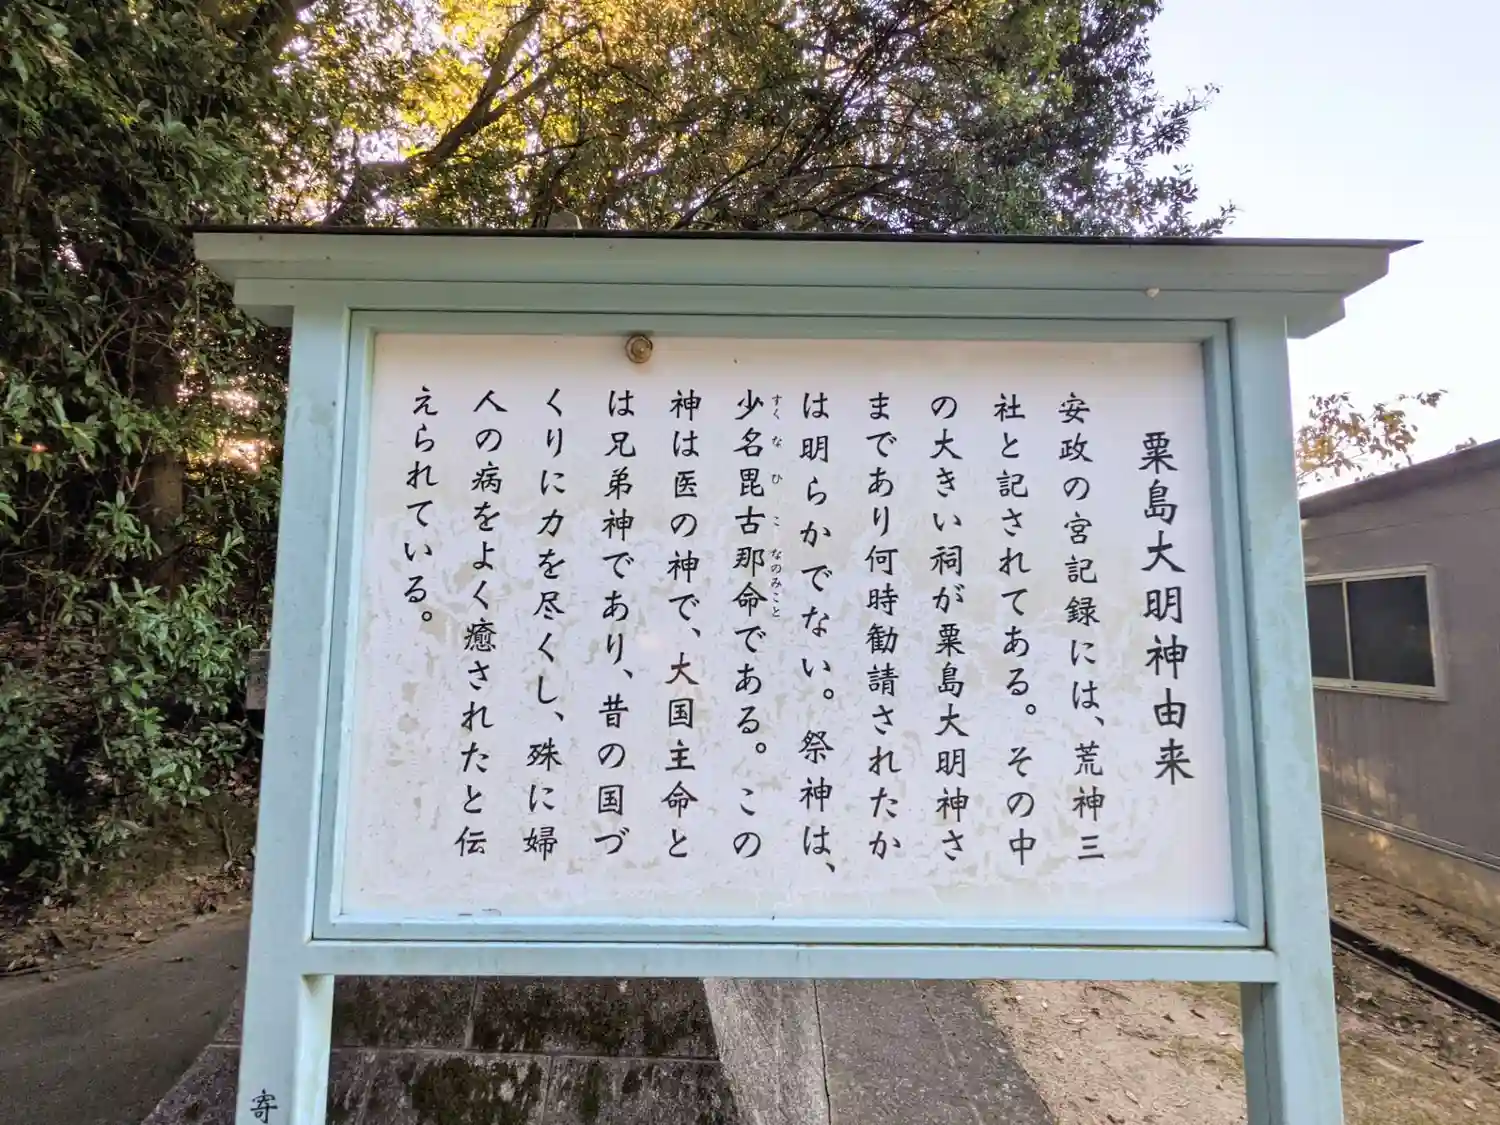 粟島大明神由来
安政の宮記録には、荒神三
社と記されてある。その中
の大きい祠が粟島大明神さ
まであり何時勧請されたか
は明らかでない。祭神は、
すくなひこなのみこと
少名毘古那命である。この
神は医の神で、大国主命と
は兄弟神であり、昔の国づ
くりに力を尽くし、殊に婦
人の病をよく癒されたと伝
えられている。
寄